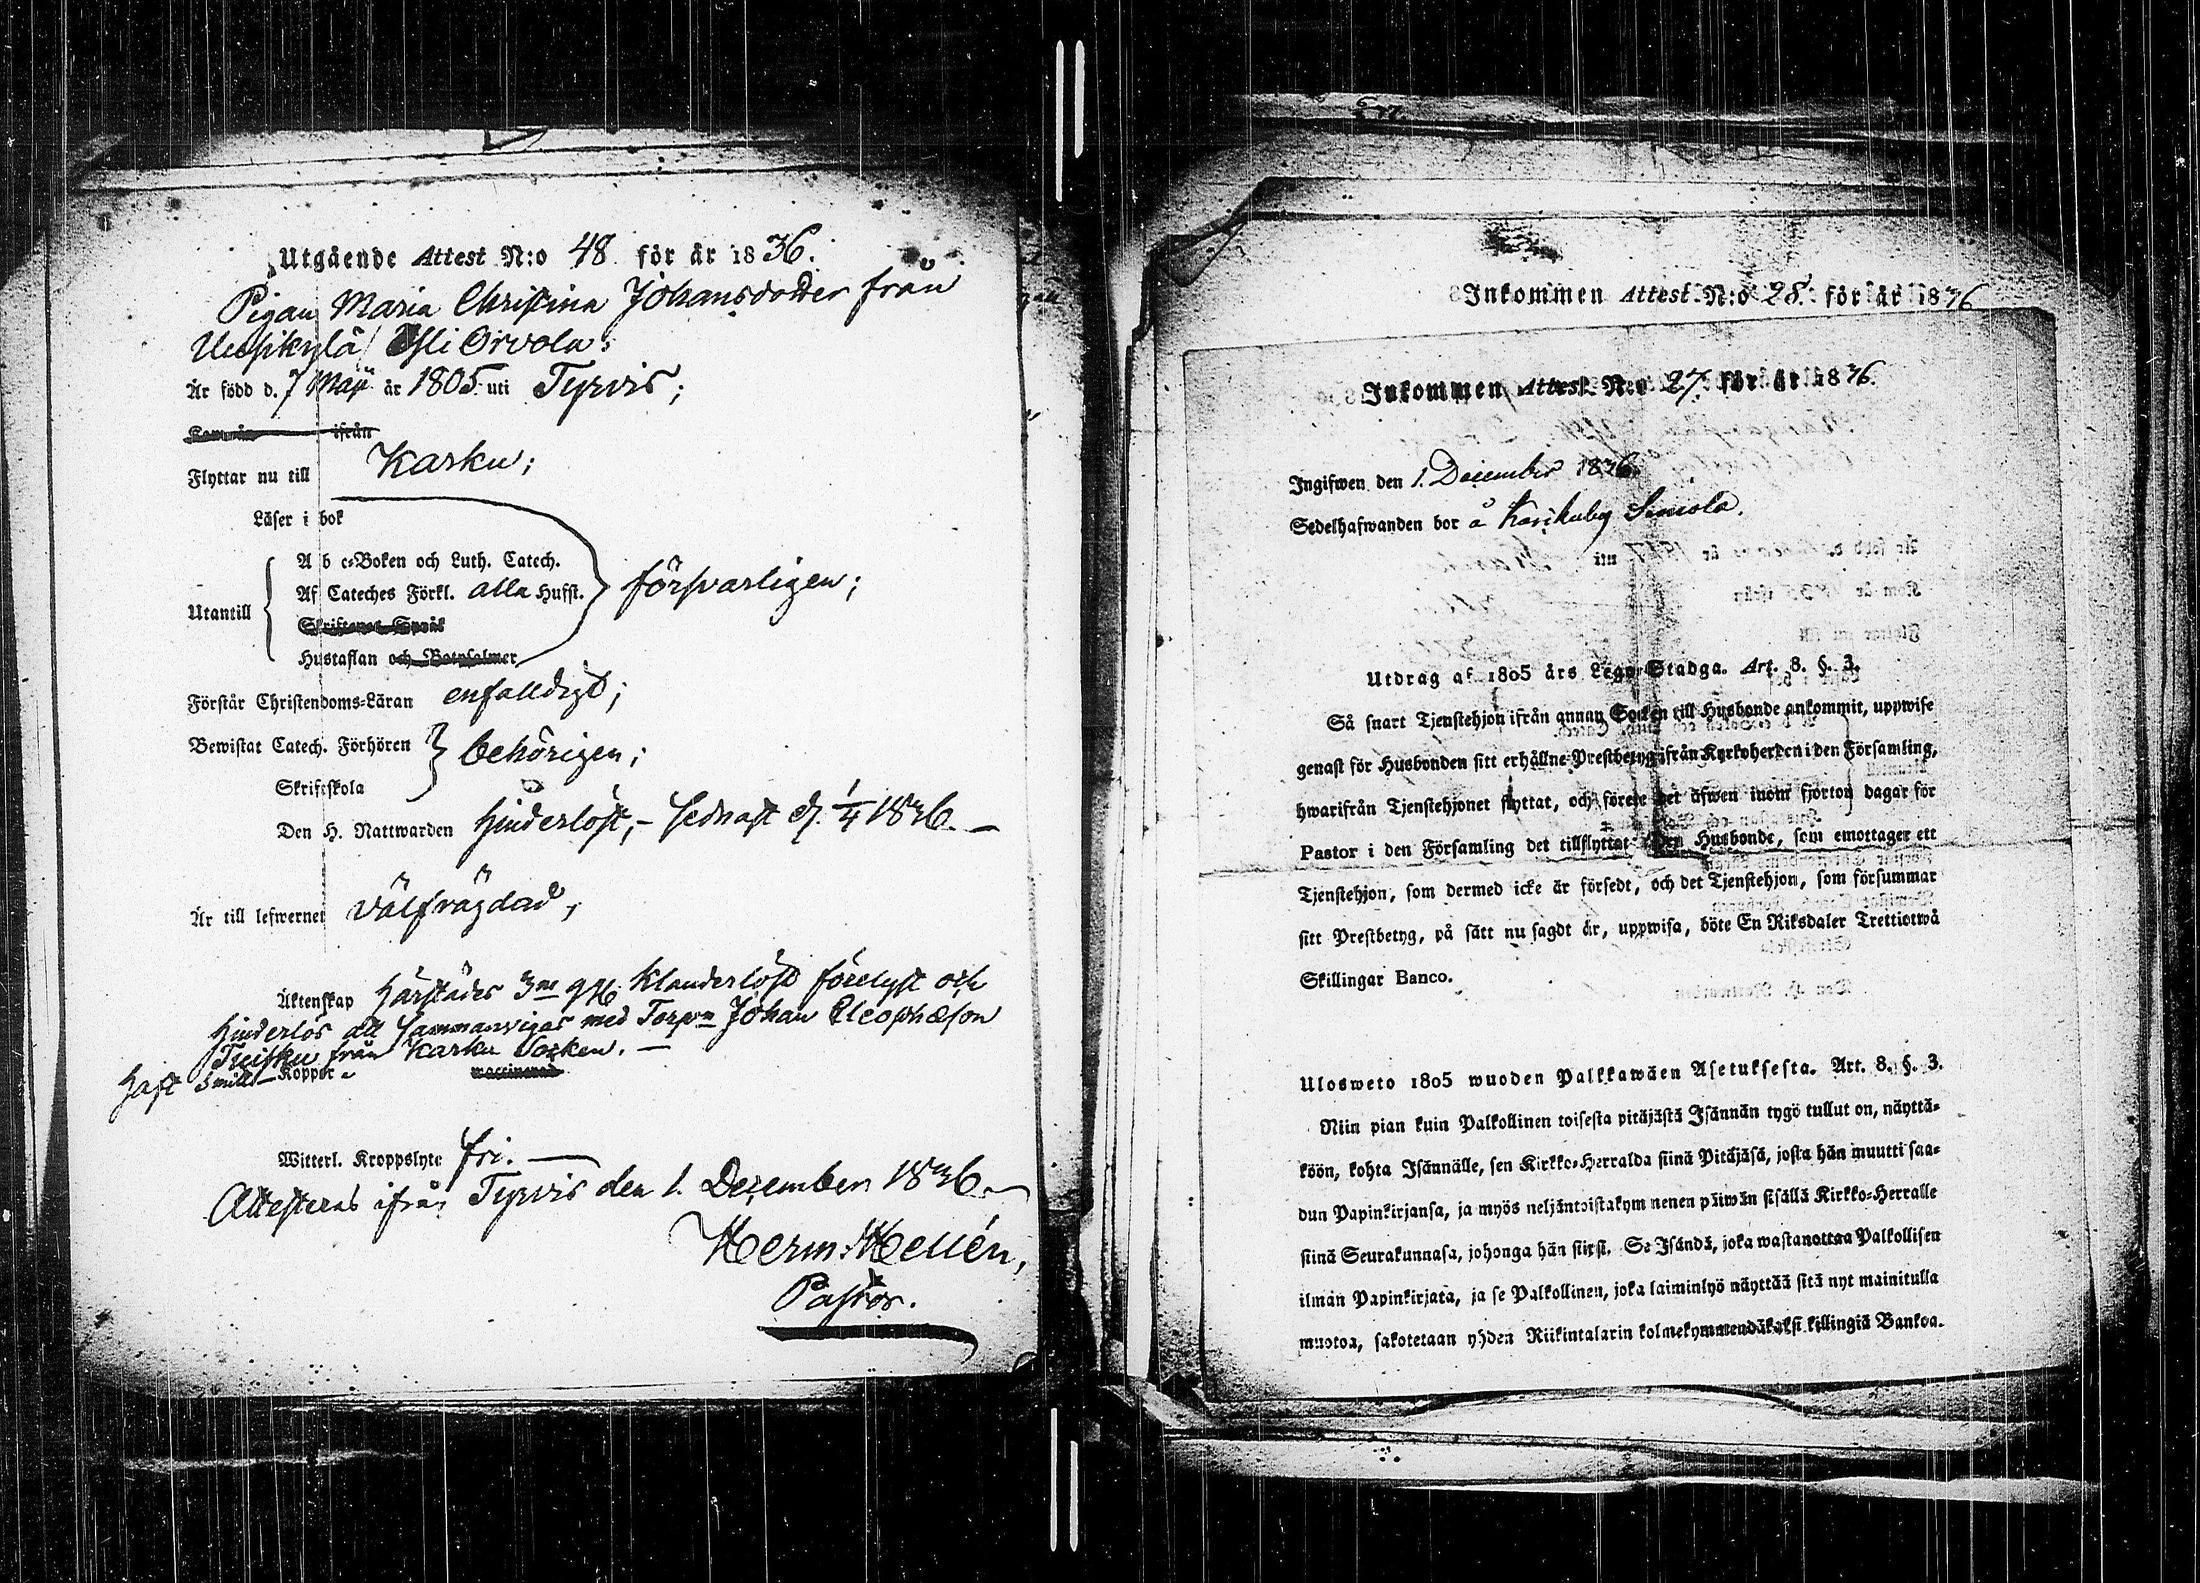 Utgående Attest N:o 48 för år 1836.
Pigan Maria Christina Johansdotter från
Orvola;
Är född d. 7 Maji år 1805 uti Tyrvis;
ifrån
Flyttar nu till Karku;
Läser i bok
A b c-Boken och Luth. Catech.
Utantill Af Cateches Förkl. alla Hufst. försvarligen;
Skriftenes Språk
Hustaflan och Botpsalmer
Förstår Christendoms-Läran enfalldigt;
Bewistat Catech. Förhören behörigen;
Skriftskola
Den H. Nattwarden hinderlöst, – sednast d. 1/4 1836. –
Är till lefwernet välfrägdad,
Äktenskap härstädes 3ne ggr klanderlöst förelyst och
hinderlös att sammanvigas med Torpn Johan Cleophæson
från Karku Socken. –
haft Koppor
waccinerad
Witterl. Kroppslyte fri. –
Attesteras ifrån Tyrvis den 1. December 1836. –
Herm. Hellén,
Pastor.
Inkommen Attest N:o 28. för år 1836
Inkommen Attest N:o 27. för år 1836.
Ingifwen den 1. December 1836.
Sedelhafwanden bor å Karkuby Simola.
Utdrag af 1805 års Lego-Stadga. Art. 8. §. 3.
Så snart Tjenstehjon ifrån annan Socken till Husbonde ankommit, uppwise
genast för Husbonden sitt erhållne Prestbetyg ifrån Kyrkoherden i den Församling,
hwarifrån Tjenstehjonet flyttat, och förete det äfwen inom fjorton dagar för
Pastor i den Församling det tillflyttat. Den Husbonde, som emottager ett
Tjenstehjon, som dermed icke är försedt, och det Tjenstehjon, som försummar
sitt Prestbetyg, på sätt nu sagdt är, uppwisa, böte En Riksdaler Trettiotwå
Skillingar Banco.
Ulosweto 1805 wuoden Palkkawäen Asetuksesta. Art. 8. §. 3.
Niin pian kuin Palkollinen toisesta pitäjästä Isännän tygö tullut on, näyttä-
köön, kohta Isännälle, sen Kirkko-Herralda siinä Pitäjäsä, josta hän muutti saa-
dun Papinkirjansa, ja myös neljäntoistakymmenen päiwän sisällä Kirkko-Herralle
siinä Seurakunnasa, johonga hän siirsi. Se Isändä, joka wastanottaa Palkollisen
ilman Papinkirjata, ja se Palkollinen, joka laiminlyö näyttää sitä nyt mainitulla
muotoa, sakotetaan yhden Riikintalarin kolmekymmendäkaksi killingiä Bankoa.